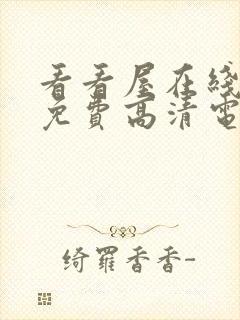 看看屋在线
免費高清電
绮羅香香-